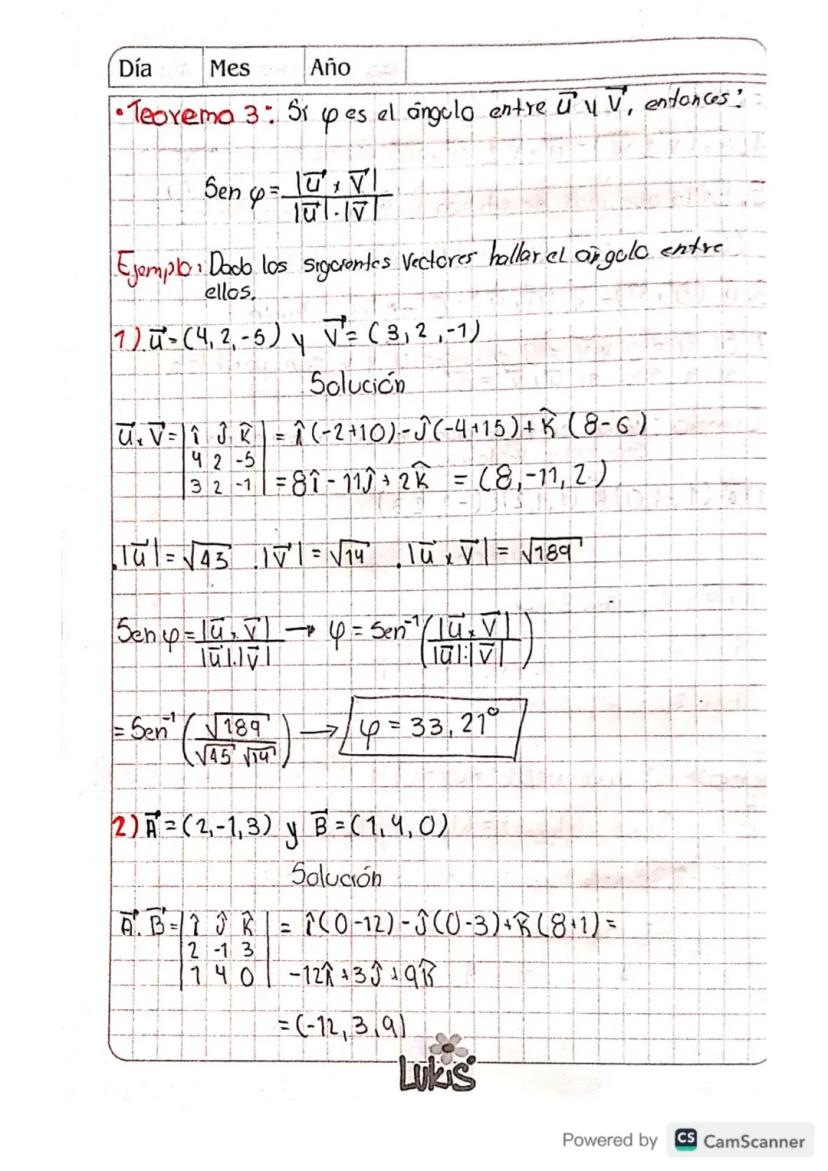 Día Mes Año
• Teorema 3: Si φ es el ángulo entre u⃗ y v⃗, entonces:
Sen φ = |u⃗ x v⃗|
|u⃗|·|v⃗|
Ejemplo: Dado los siguientes vectores hallar el ángulo entre
ellos.
1) u⃗ = (4, 2, -5) y v⃗ = (3, 2, -1)
Solución
u⃗ x v⃗ = | î ĵ k̂ | = î (-2+10) - ĵ (-4+15) + k̂ (8-6)
4 2 -5
3 2 -1 = 8î - 11ĵ + 2k̂ = (8, -11, 2)
. |u⃗| = √45 . |v⃗| = √14 . |u⃗ x v⃗| = √189
Sen φ = |u⃗ x v⃗| → φ = Sen⁻¹ ( |u⃗ x v⃗| )
|u⃗|.|v⃗| |u⃗|.|v⃗|
= Sen⁻¹ ( √189 ) → φ = 33,21°
√45 √14
2) A⃗ = (2, -1, 3) y B⃗ = (1, 4, 0)
Solución
A⃗. B⃗ = | î ĵ k̂ | = î (0-12) - ĵ (0-3) + k̂ (8+1) =
2 -1 3
1 4 0 -12î + 3ĵ + 9k̂
= (-12, 3, 9)
Lukis
Powered by CS CamScanner